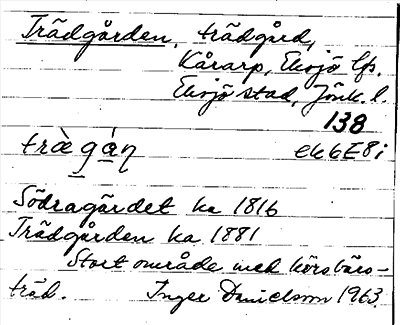 Trädgården, trädgård,
Kårarp, Eksjö lfs.
Eksjö stad, Jönk. l.
138
trä̀gá̱ṉ ek6E8i
Södragärdet ka 1816
Trädgården ka 1881
Stort område med körsbärs-
träd. Inger Danielsson 1963.